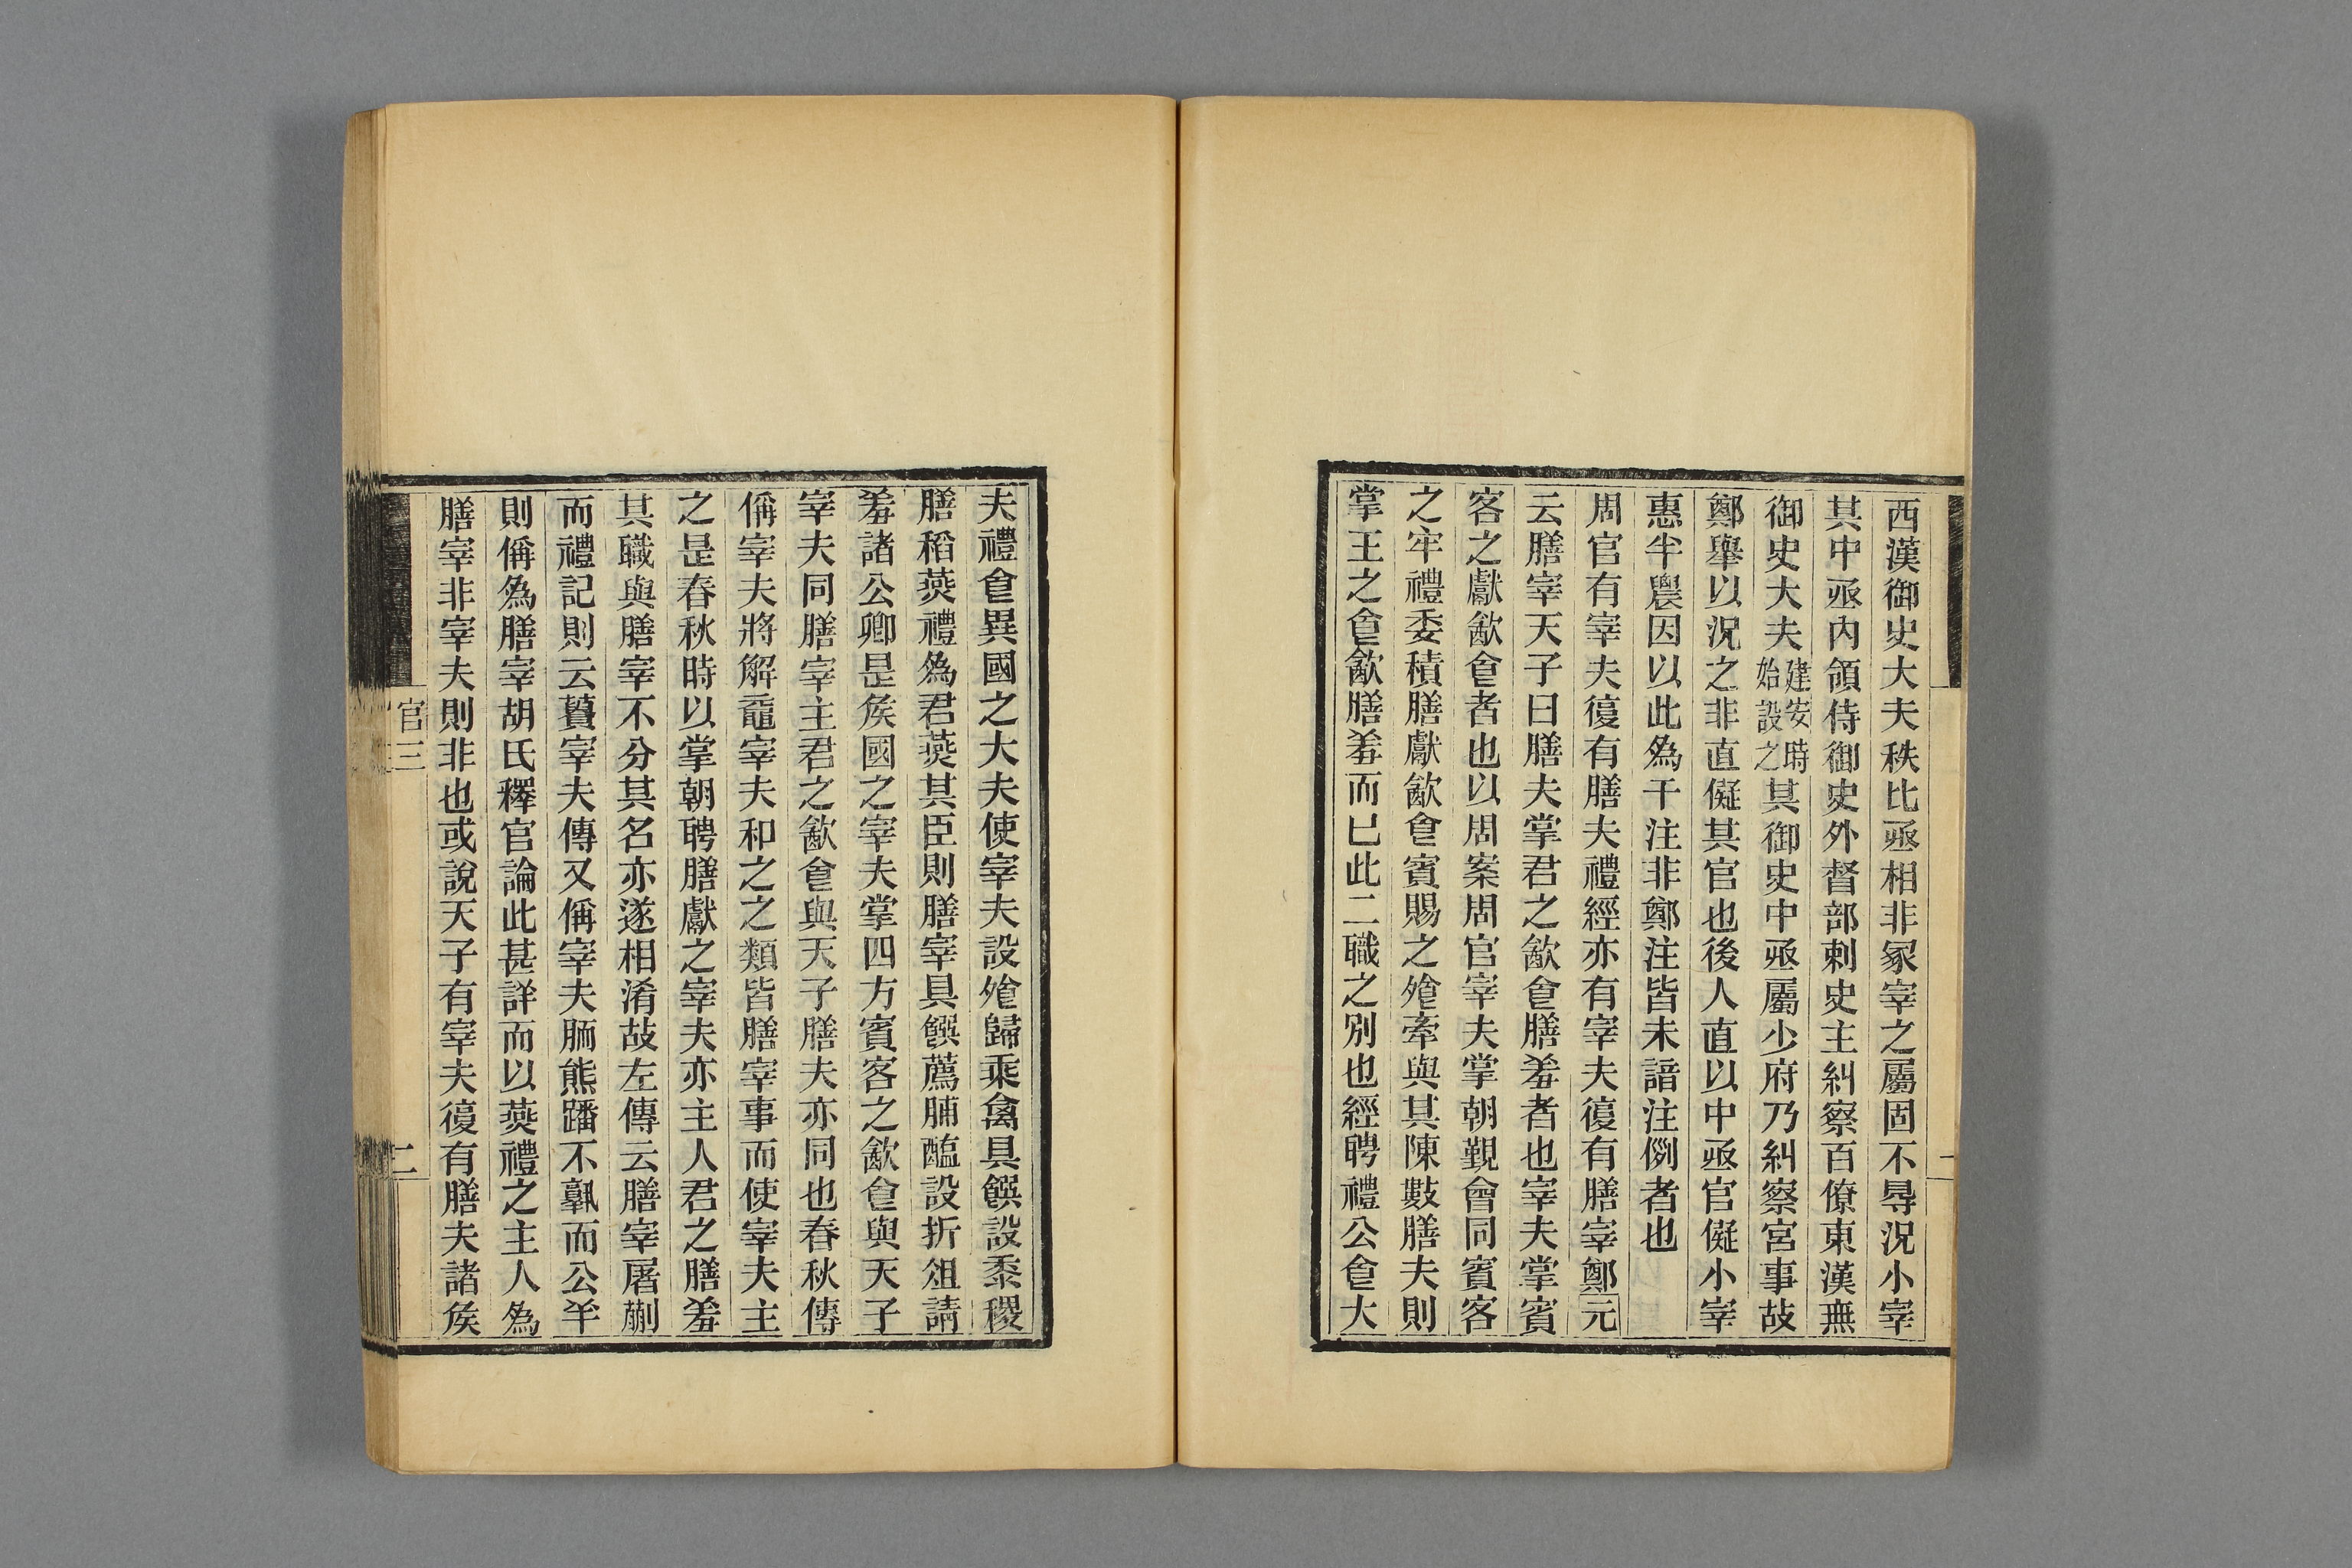 西漢御史大夫秩比丞相非冢宰之屬固不㝵況小宰
其中丞內領侍御史外督部刺史主糾察百僚東漢無
御史大夫建安時始設之其御史中丞屬少府乃糾察宮事故
鄭舉以況之非直儗其官也後人直以中丞官儗小宰
惠半農因以此爲干注非鄭注皆未諳注例者也
周官有宰夫復有膳夫禮經亦有宰夫復有膳宰鄭元
云膳宰天子曰膳夫掌君之歙食膳羞者也宰夫掌賓
客之獻歙食者也以周案周官宰夫掌朝覲會同賓客
之牢禮委積膳獻歙食賓賜之飱牽與其陳數膳夫則
掌王之食歙膳羞而已此二職之別也經聘禮公食大
夫禮食異國之大夫使宰夫設飱歸乘禽具饌設黍稷
膳稻燕禮爲君燕其臣則膳宰具饌薦脯醢設折俎請
羞諸公卿是矦國之宰夫掌四方賓客之歙食與天子
宰夫同膳宰主君之歙食與天子膳夫亦同也春秋傳
偁宰夫將解黿宰夫和之之類皆膳宰事而使宰夫主
之是春秋時以掌朝聘膳獻之宰夫亦主人君之膳羞
其職與膳宰不分其名亦遂相淆故左傳云膳宰屠蒯
而禮記則云蕢宰夫傳又偁宰夫胹熊蹯不孰而公羊
則偁爲膳宰胡氏釋官論此甚詳而以燕禮之主人爲
膳宰非宰夫則非也或說天子有宰夫復有膳夫諸矦
官三
二